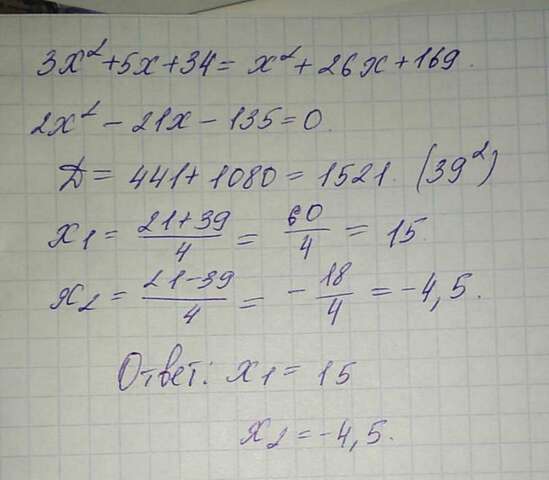 3x²+5x+34= x²+26x+169.
2x²-21x-135=0.
D=441+1080=1521. (39²)
x1= 21+39/4 = 60/4 = 15.
x2= 21-39/4 = -18/4 =-4,5.
Ответ: x1=15
x2=-4,5.